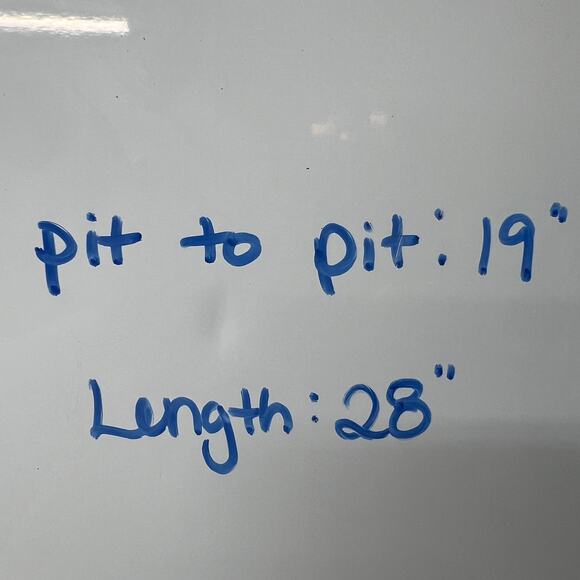 pit to pit: 19"
Length: 28"